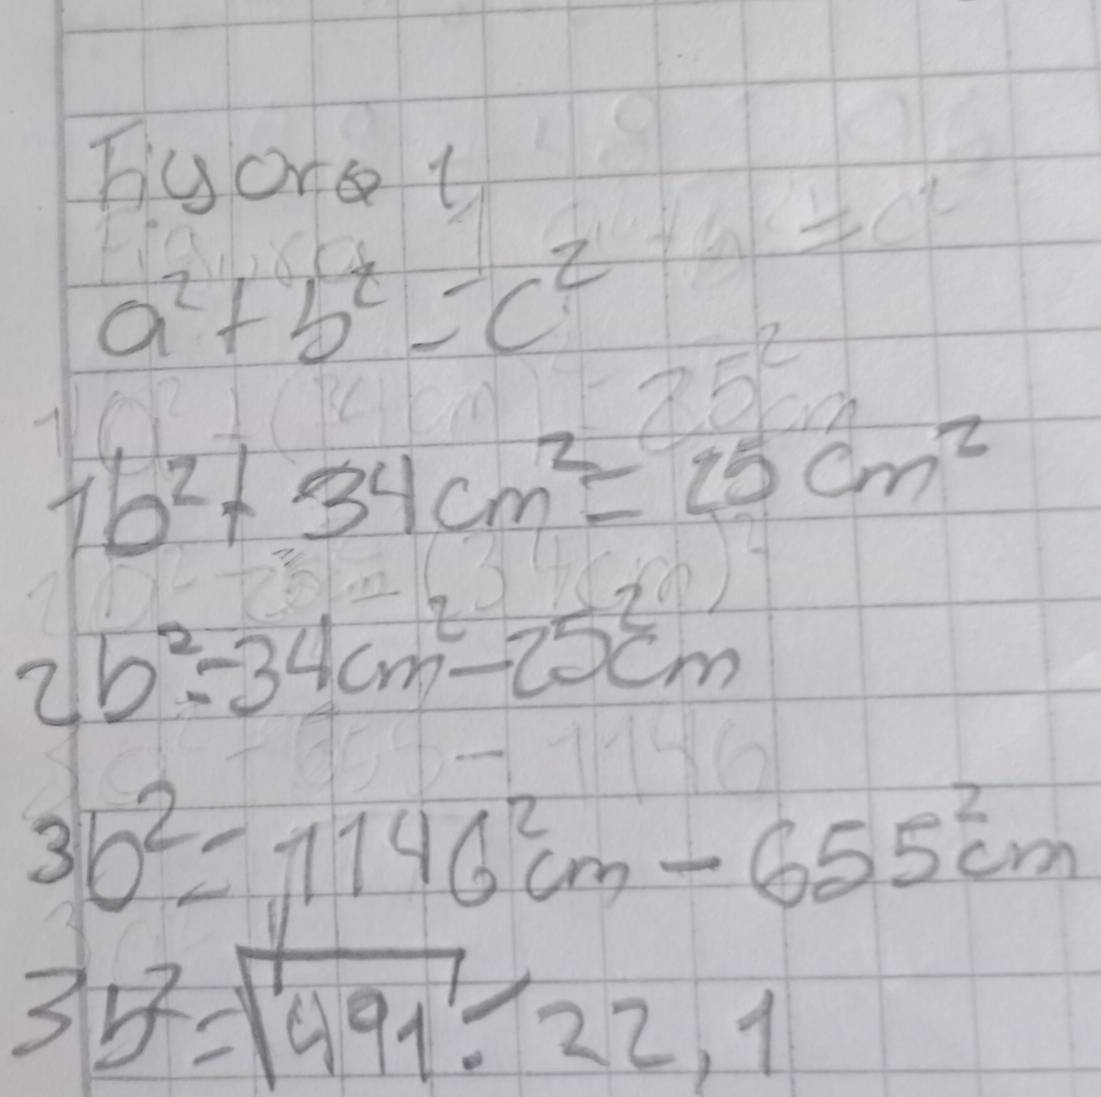 Figora 1
a² + b² = c²
1 b² + 34 cm² = 25 cm²
2 b² = 34 cm² - 25² cm
3 b² = 1146² cm - 655² cm
3 b² = √491 = 22,1